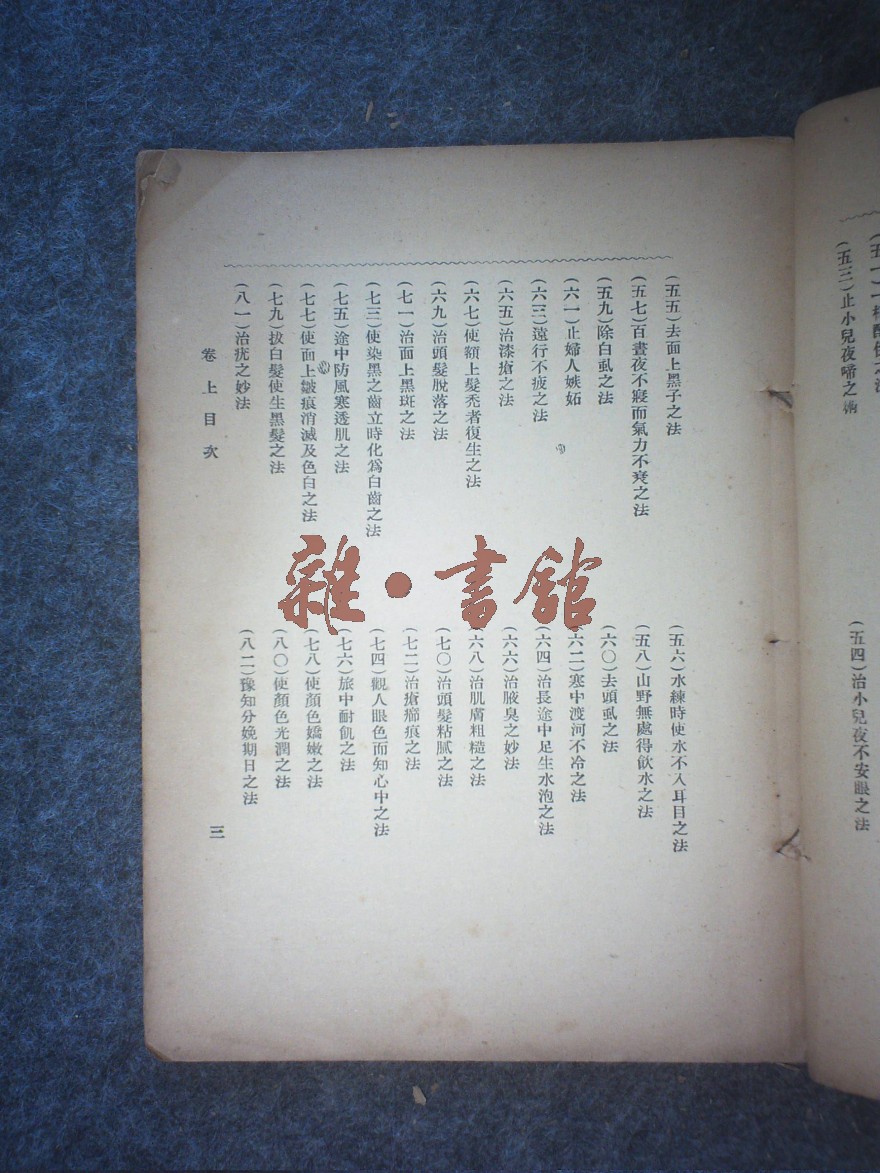 (五三)止小兒夜啼之
(五四)治小兒夜不安眠之法
(五五)去面上黑子之法
(五六)水練時使水不入耳目之法
(五七)百晝夜不寢而氣力不衰之法
(五八)山野無處得飲水之法
(五九)除白虱之法
(六〇)去頭虱之法
(六一)止婦人嫉妬
(六二)寒中渡河不冷之法
(六三)遠行不疲之法
(六四)治長途中足生水泡之法
(六五)治漆瘡之法
(六六)治腋臭之妙法
(六七)使額上髮禿者復生之法
(六八)治肌膚粗糙之法
(六九)治頭髮脫落之法
(七〇)治頭髮粘膩之法
(七一)治面上黑斑之法
(七二)治瘡癤痕之法
(七三)使染黑之齒立時化爲白齒之法
(七四)觀人眼色而知心中之法
(七五)途中防風寒透肌之法
(七六)旅中耐飢之法
(七七)使面上皺痕消滅及色白之法
(七八)使顏色嬌嫩之法
(七九)拔白髮使生黑髮之法
(八〇)使顏色光潤之法
(八一)治疣之妙法
(八二)豫知分娩期日之法
卷上目次
三
雜·書館